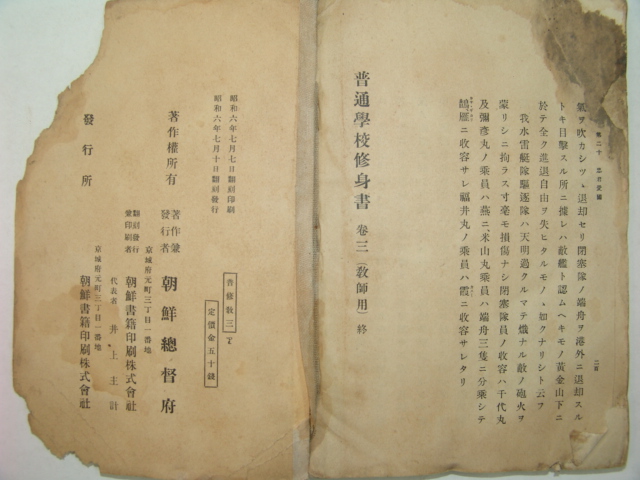 第二十 忠君愛國
二百
氣ヲ吹カシツヽ退却セリ閉塞隊ノ端舟ヲ港外ニ退却スル
トキ目擊スル所ニ據レハ敵艦ト認ムヘキモノ黃金山下ニ
於テ全ク進退自由ヲ失ヒタルモノヽ如クナリシト云フ
我水雷艇隊驅逐隊ハ天明過クルマテ熾ナル敵ノ砲火ヲ
蒙リシニ拘ラス寸毫モ損傷ナシ閉塞隊員ノ收容ハ千代丸
及彌彥丸ノ乘員ハ燕ニ、米山丸乘員ハ端舟三隻ニ分乘シテ
鵲雁ニ收容サレ福井丸ノ乘員ハ霞ニ收容サレタリ
普通學校修身書 卷三 (敎師用) 終
昭和六年七月七日翻刻印刷
昭和六年七月十日翻刻發行
著作權所有
著作兼發行者 朝鮮總督府
京城府元町三丁目一番地
翻刻發行兼印刷者 朝鮮書籍印刷株式會社
代表者 井上主計
發行所
京城府元町三丁目一番地
朝鮮書籍印刷株式會社
普修敎三
定價金五十錢